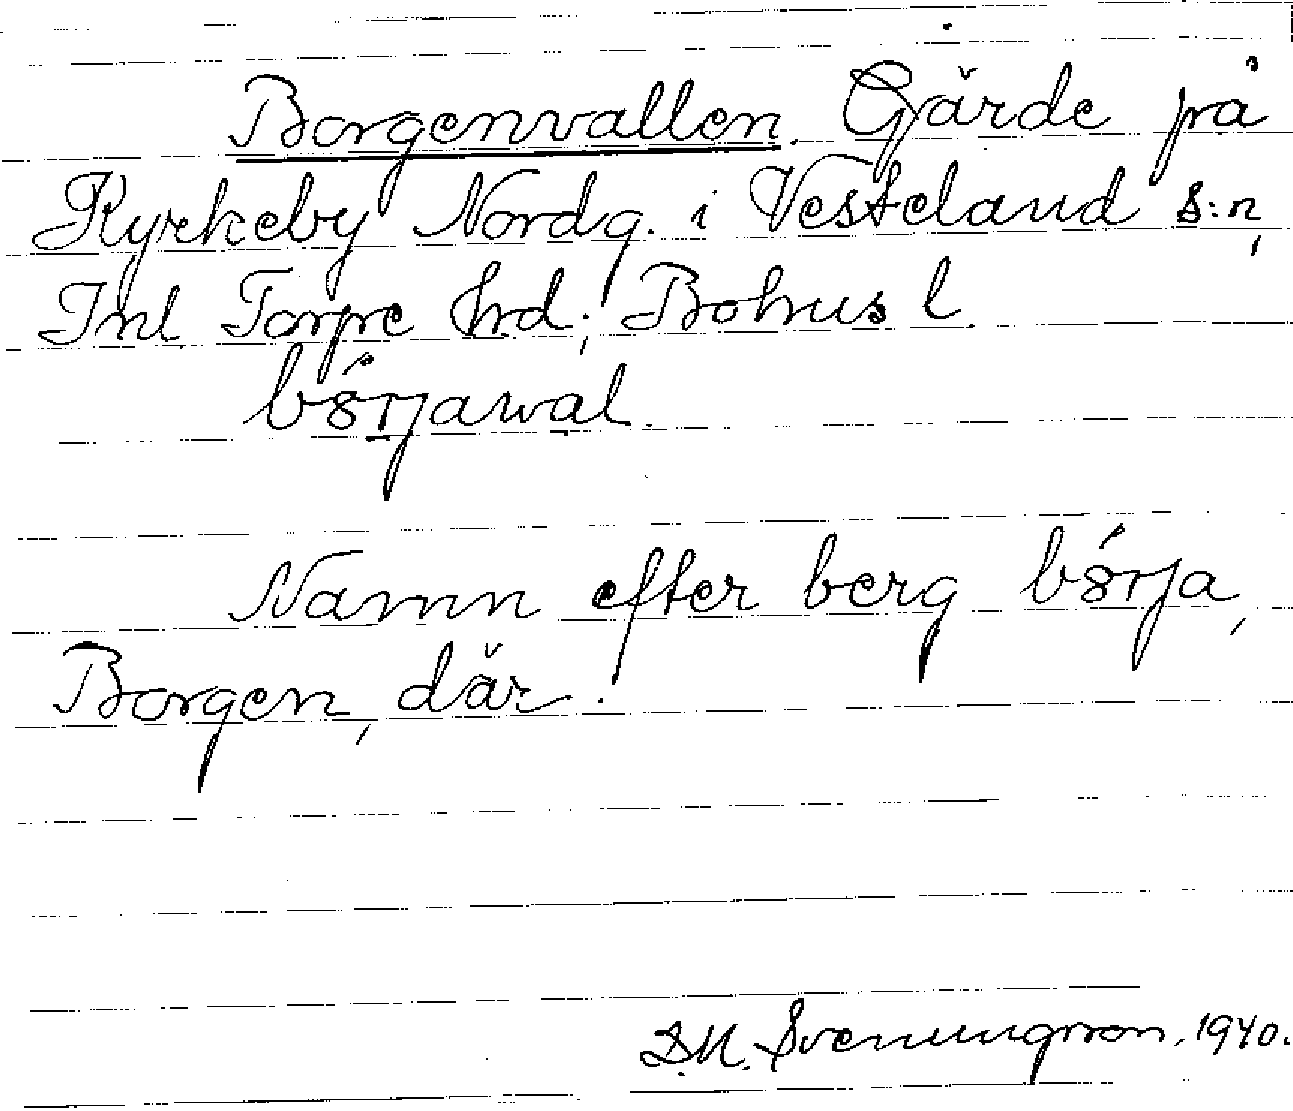 Borgenvallen. Gärde på
Kyrkeby Nordg. i Vesteland s:n,
Inl. Torpe hrd; Bohus l.
bŏ́rjawal.
Namn efter berg bŏ́rja,
Borgen, där.
D.N. Svenungsson. 1940.